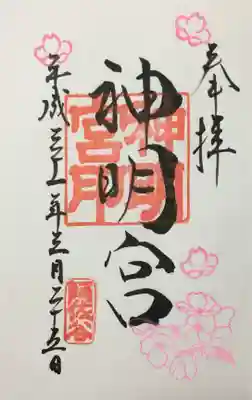 奉拝
神明宮
神明宮
平成三十一年三月二十五日